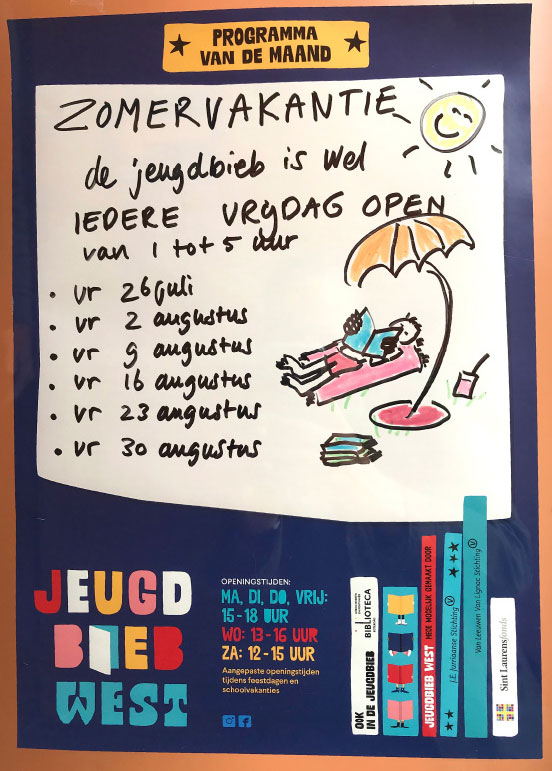 PROGRAMMA
VAN DE MAAND
ZOMERVAKANTIE
de jeugdbieb is wel
IEDERE VRYDAG OPEN
van 1 tot 5 uur
• vr 26 juli
• vr 2 augustus
• vr 9 augustus
• vr 16 augustus
• vr 23 augustus
• vr 30 augustus
JEUGD
BIEB
WEST
OPENINGSTIJDEN:
MA, DI, DO, VRIJ:
15-18 UUR
WO: 13-16 UUR
ZA: 12-15 UUR
Aangepaste openingstijden
tijdens feestdagen en
schoolvakanties
OOK
IN DE JEUGDBIEB
BIBLIOTECA
JEUGDBIEB WEST MEDE MOGELIJK GEMAAKT DOOR
J.E. Jurriaanse Stichting
Van Leeuwen Van Lignac Stichting
Sint Laurensfonds